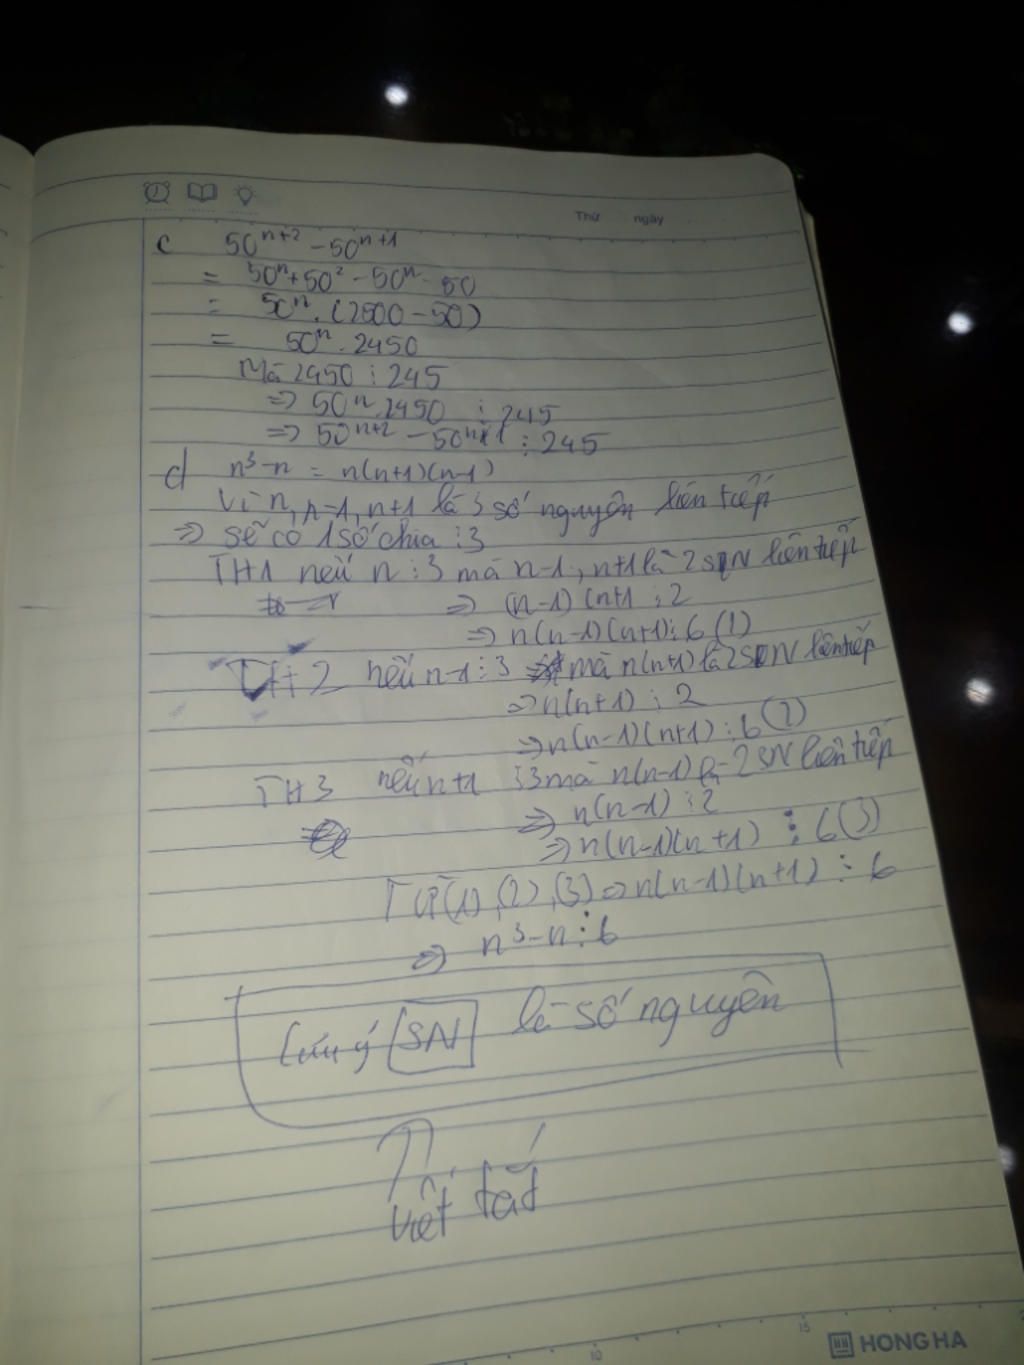 Thứ ngày
c 50ⁿ⁺² - 50ⁿ⁺¹
= 50ⁿ+50² - 50ⁿ - 50
= 50ⁿ . (2500 - 50)
= 50ⁿ . 2450
Mà 2450 ⋮ 245
=> 50ⁿ.2450 ⋮ 245
=> 50ⁿ⁺² - 50ⁿ⁺¹ ⋮ 245
d n³-n = n(n+1)(n-1)
Vì n, n-1, n+1 là 3 số nguyên liên tiếp
=> sẽ có 1 số chia ⋮3
TH1 nếu n ⋮3 mà n-1, n+1 là 2 SN liên tiếp
=> (n-1)(n+1 ⋮2
=> n(n-1)(n+1)⋮6 (1)
TH2 nếu n-1⋮3 mà n(n+1) là 2 SN liên tiếp
=> n(n+1) ⋮ 2
=> n(n-1)(n+1) ⋮6 (2)
TH3 nếu n+1 ⋮3 mà n(n-1) là 2 SN liên tiếp
=> n(n-1) ⋮2
=> n(n-1)(n+1) ⋮ 6(3)
Từ (1), (2), (3) => n(n-1)(n+1) ⋮ 6
=> n³-n⋮6
Lưu ý SN là số nguyên
viết tắt
10 15
HONG HA